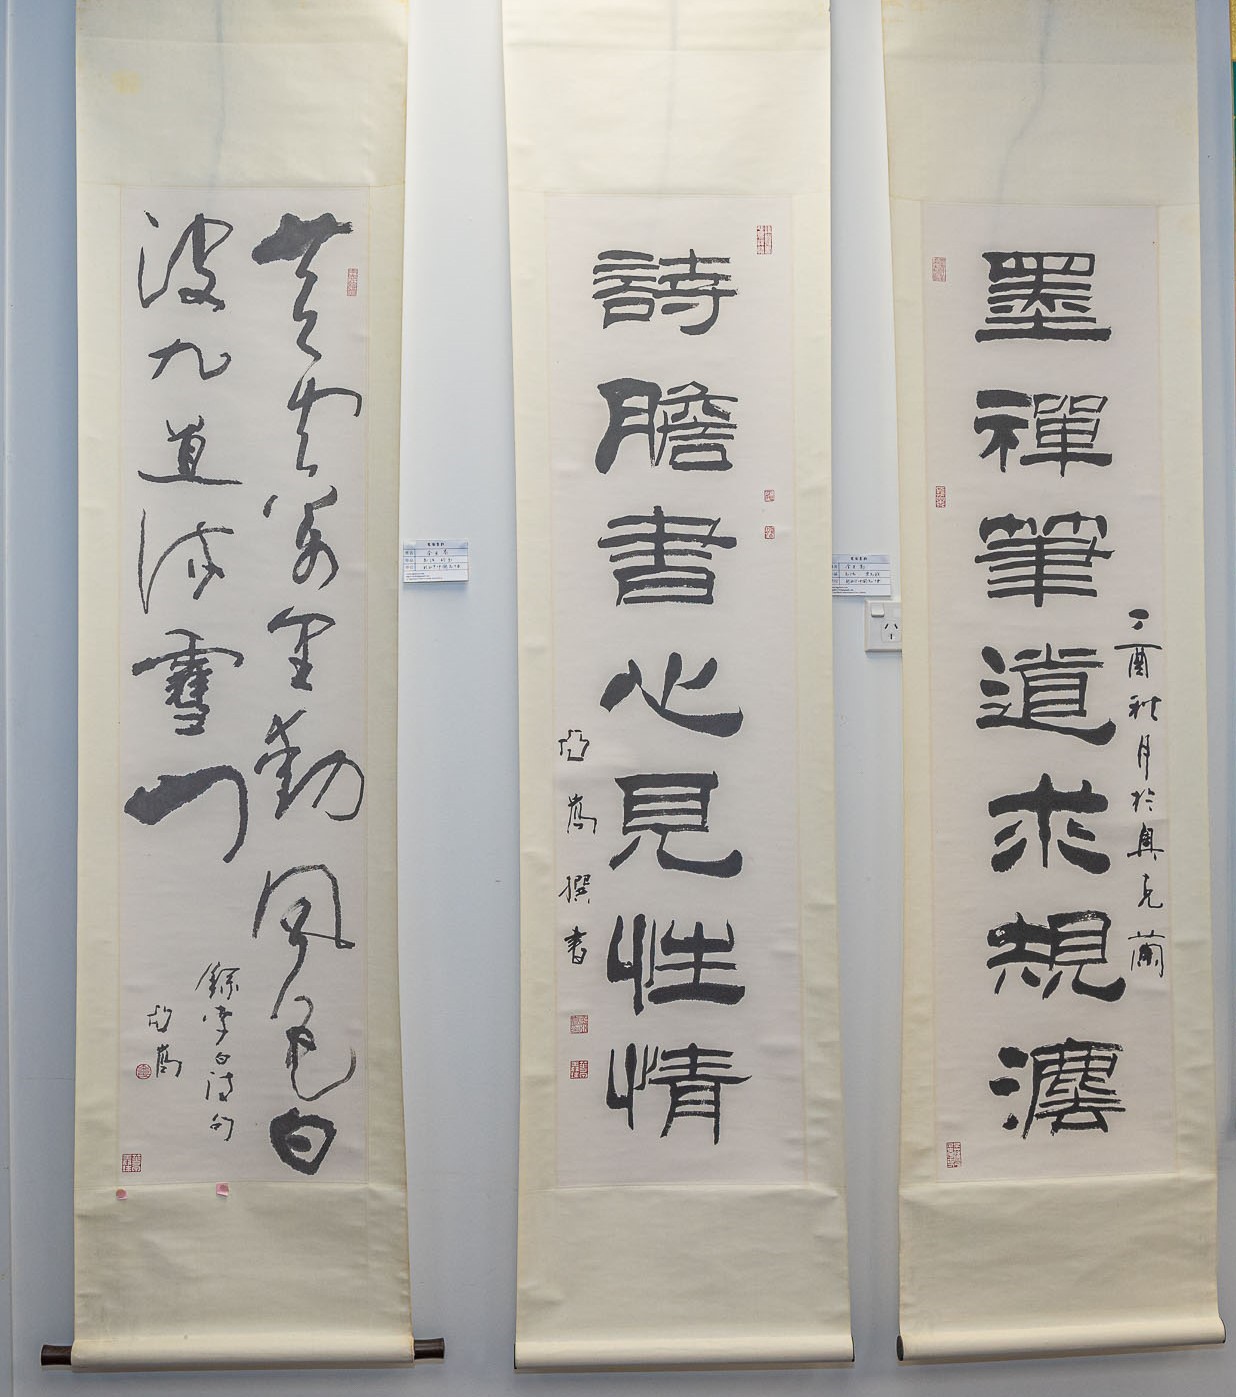 丁酉秋月於奧克蘭
墨禪筆道求規灋
詩膽書心見性情
亞嵩撰書
黃雲萬里動風色白
波九道流雪山
錄李白詩句
亞嵩